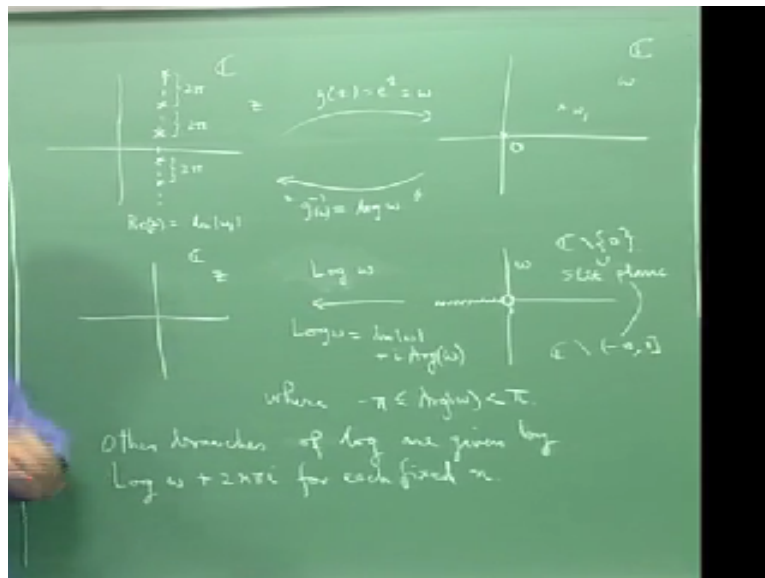 ℂ
ℂ
2π
2π
2π
z
g(z) = e^z = w
w
× w₁
0
"g⁻¹(w) = log w"
Re(z) = ln|w₁|
ℂ
z
Log w
Log w = ln|w|
+ i Arg(w)
w
ℂ \ {0}
slit plane
ℂ \ (-∞, 0]
where -π ≤ Arg(w) < π.
Other branches of log are given by
Log w + 2nπi for each fixed n.